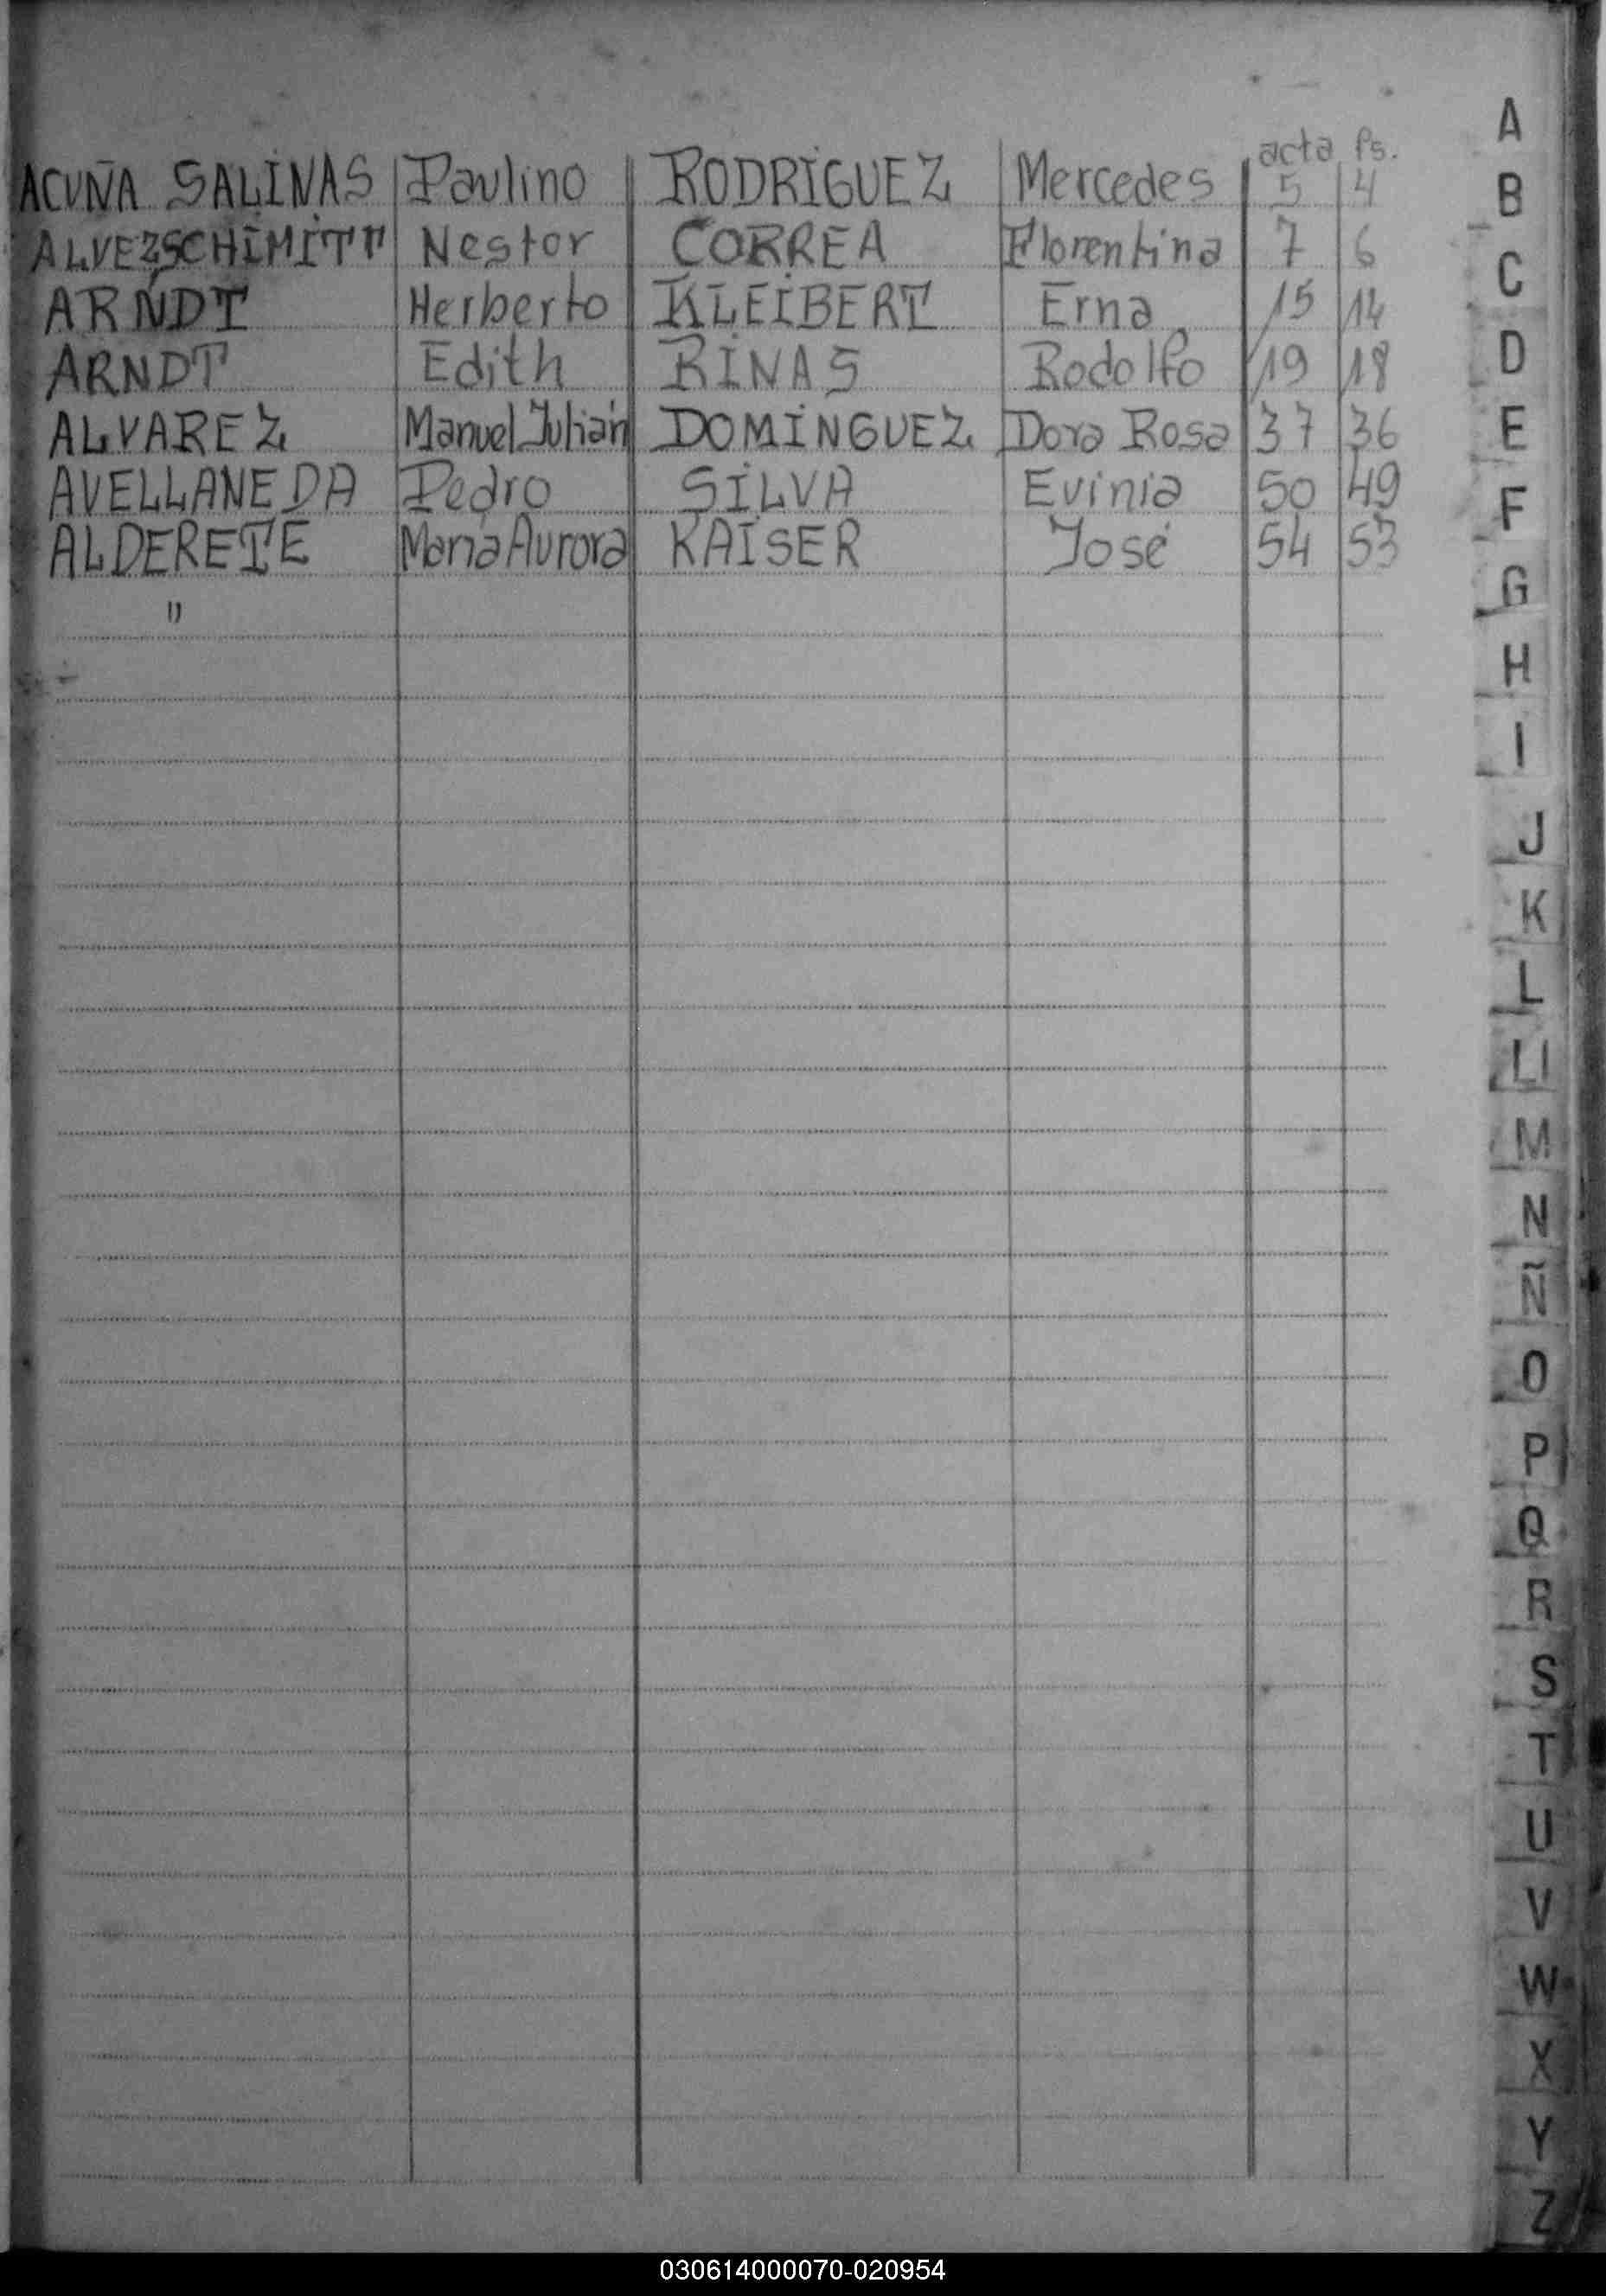 acta fs.
ACUÑA SALINAS Paulino RODRIGUEZ Mercedes 5 4
ALVEZ SCHIMITT Nestor CORREA Florentina 7 6
ARNDT Herberto KLEIBERT Erna 15 14
ARNDT Edith RINAS Rodolfo 19 18
ALVAREZ Manuel Julián DOMINGUEZ Dora Rosa 37 36
AVELLANEDA Pedro SILVA Evinia 50 49
ALDERETE Maria Aurora KAISER José 54 53
"
A
B
C
D
E
F
G
H
I
J
K
L
Ll
M
N
Ñ
O
P
Q
R
S
T
U
V
W
X
Y
Z
030614000070-020954